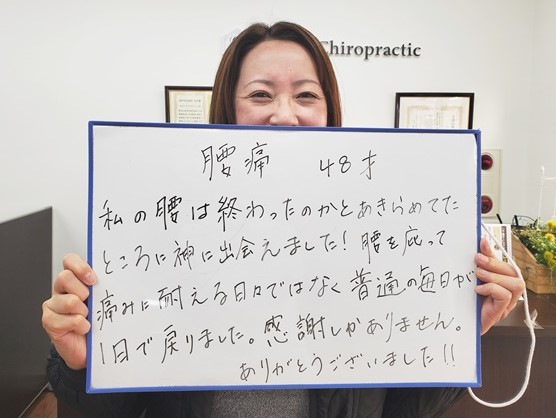 Chiropractic
腰痛 48才
私の腰は終わったのかとあきらめてた
ところに神に出会えました！腰を庇って
痛みに耐える日々ではなく普通の毎日が
1日で戻りました。感謝しかありません。
ありがとうございました!!